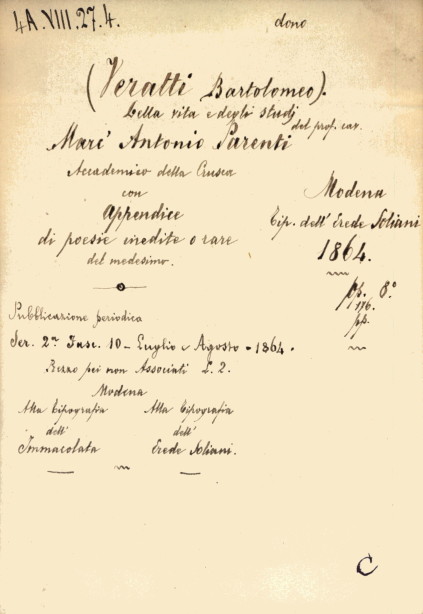 4A.VIII.27.4.
dono
(Veratti Bartolomeo).
Della vita e degli studj
del prof. cav.
Marc' Antonio Parenti
Accademico della Crusca
con
Appendice
di poesie inedite o rare
del medesimo.
Modena
Tip. dell'Erede Soliani
1864.
pp. 8°
176.
pp.
Pubblicazione periodica
Ser. 2ª Fasc. 10 - Luglio e Agosto - 1864.
Prezzo pei non Associati L. 2.
Modena
Alla Tipografia
dell'
Immacolata
Alla Tipografia
dell'
Erede Soliani.
C